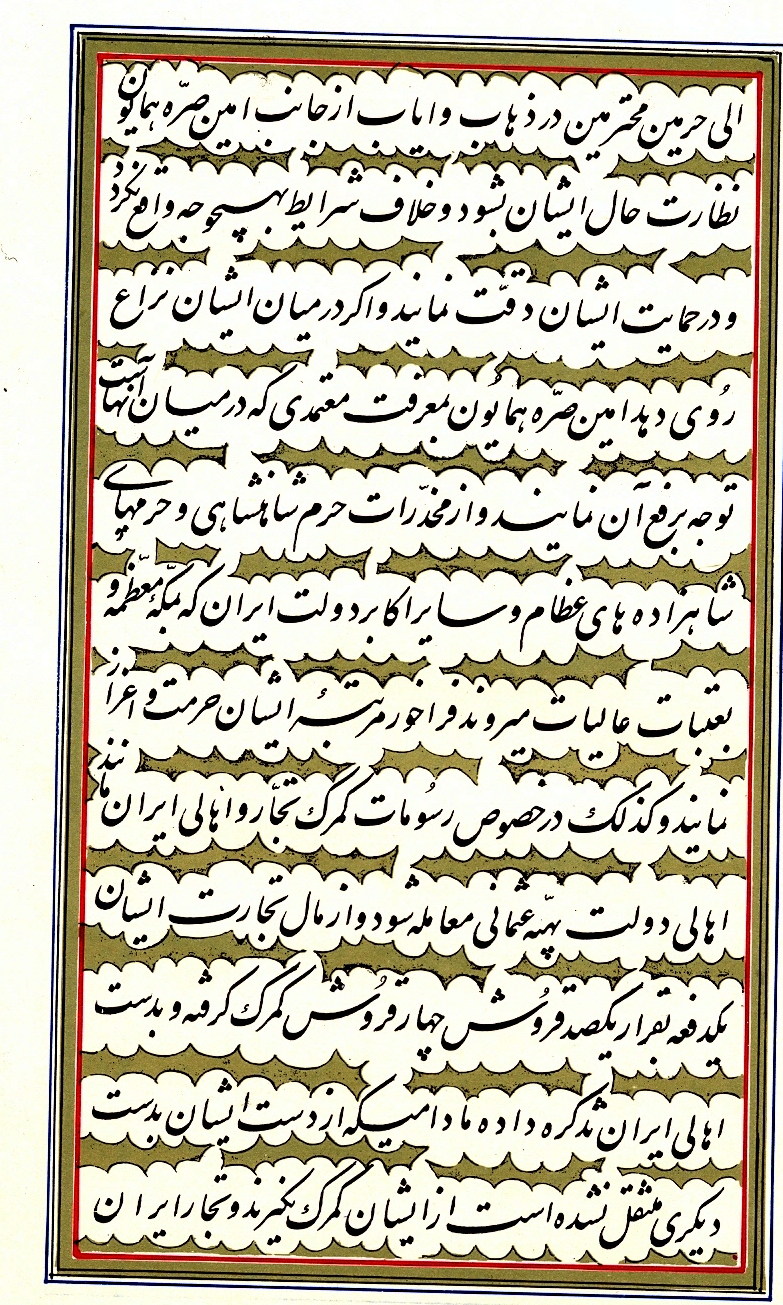 الی حرمین محترمین در ذهاب و ایاب از جانب امین صرّه همایون
نظارت حال ایشان بشود و خلاف شرایط بهیچوجه واقع نکردد
و در حمایت ایشان دقّت نمایند و اکر در میان ایشان نزاع
رُوی دهد امین صرّه همایُون بمعرفت معتمدی که در میان آنهاست
توجه برفع آن نمایند و از مخدّرات حرم شاهنشاهی و حرمهای
شاهزاده های عظام و سایر اکابر دولت ایران که بمکّهٔ معظّمه و
بعتبات عالیات میروند فراخور مرتبهٔ ایشان حرمت و اعزاز
نمایند و کذلک در خصوص رسُومات کمرک تجّار و اهالی ایران مانند
اهالی دولت بهیّه عثمانی معامله شود و از مال تجارت ایشان
یکدفعه بقرار یکصد قروُش چهار قروُش کمرک کرفته و بدست
اهالی ایران تذکره داده مادامیکه از دست ایشان بدست
دیکری منتقل نشده است از ایشان کمرک نکیرند و تجار ایران